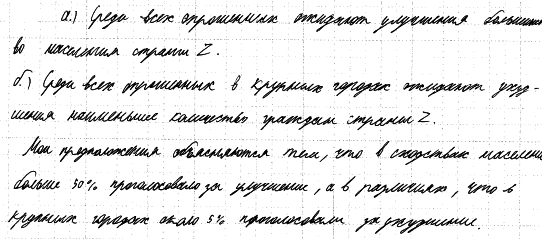 а.) Среди всех опрошенных ожидают улучшения большинст
во населения страны Z.
б.) Среди всех опрошенных в крупных городах ожидают ухуд-
шения наименьшее количество граждан страны Z.
Мои предположения объясняются тем, что в сходствах населени
больше 50% проголосовало за улучшение, а в различиях, что в
крупных городах около 5% проголосовали за ухудшение.